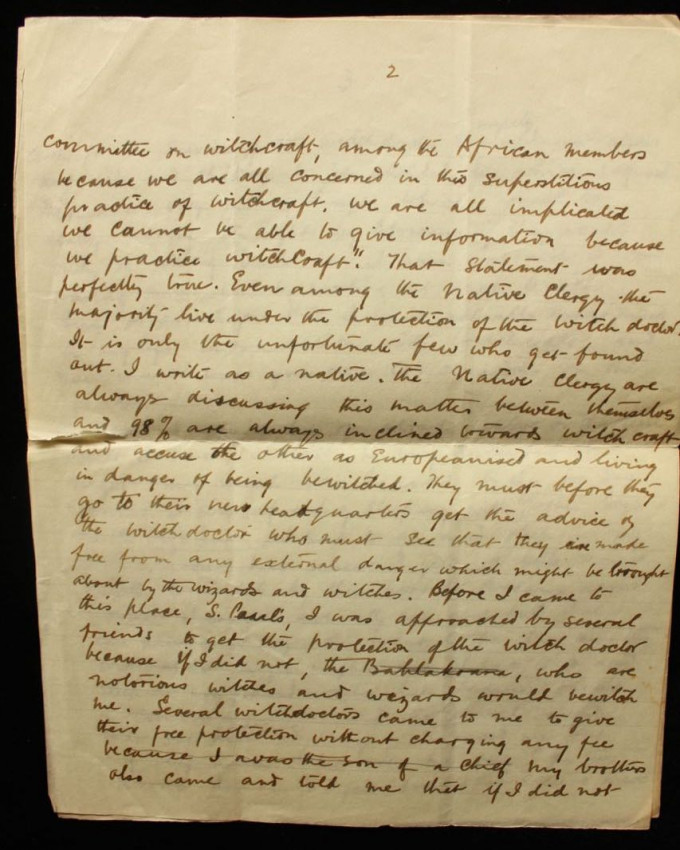 2
committee on witchcraft, among the African members
because we are all concerned in this superstitious
practice of witchcraft. we are all implicated
we cannot be able to give information because
we practice witchcraft." That statement was
perfectly true. Even among the Native Clergy the
majority live under the protection of the witch doctor.
It is only the unfortunate few who get found
out. I write as a native. The Native Clergy are
always discussing this matter between themselves
and 98% are always inclined towards witchcraft
and accuse the other as Europeanised and living
in danger of being bewitched. They must before they
go to their new headquarters get the advice of
the witch doctor who must see that they are made
free from any external danger which might be brought
about by the wizards and witches. Before I came to
this place, S. Paul's, I was approached by several
friends to get the protection of the witch doctor
because if I did not, the Bahlakoana, who are
notorious witches and wizards would bewitch
me. Several witchdoctors came to me to give
their free protection without charging any fee
because I was the son of a chief my brothers
also came and told me that if I did not